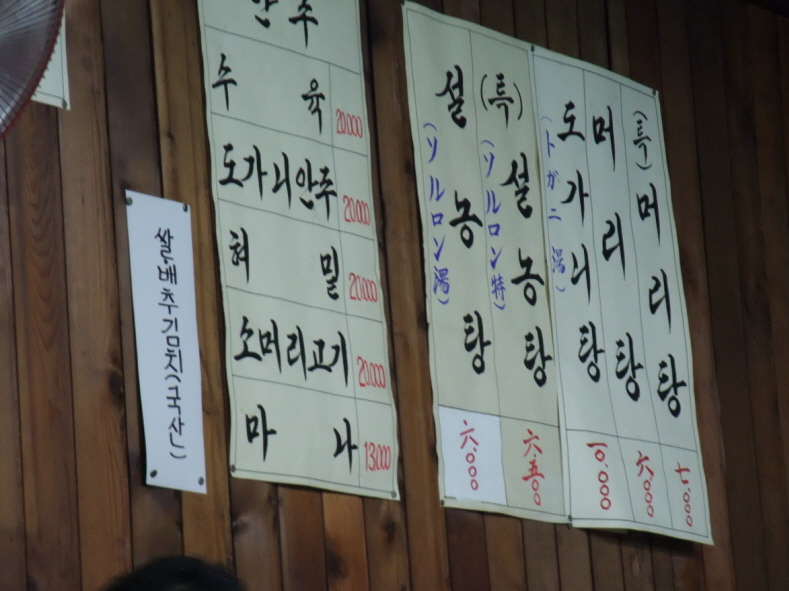 안주
수육 20,000
도가니안주 20,000
혀밀 20,000
소머리고기 20,000
마나 13,000
쌀.배추김치(국산)
설농탕
(ソルロン湯)
六.000
(특)설농탕
(ソルロン特)
六.五00
도가니탕
(トガニ湯)
一0.000
머리탕
六.000
(특)머리탕
七.000